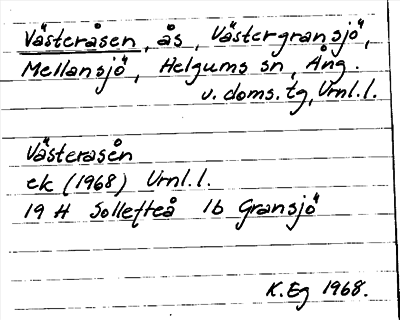 Västeråsen, ås, Västergransjö,
Mellansjö, Helgums sn, Ång.
v. doms. tg, Vrnl. l.
Västeråsen
ek (1968) Vrnl. l.
19 H Sollefteå 1b Gransjö
K. Eg 1968.